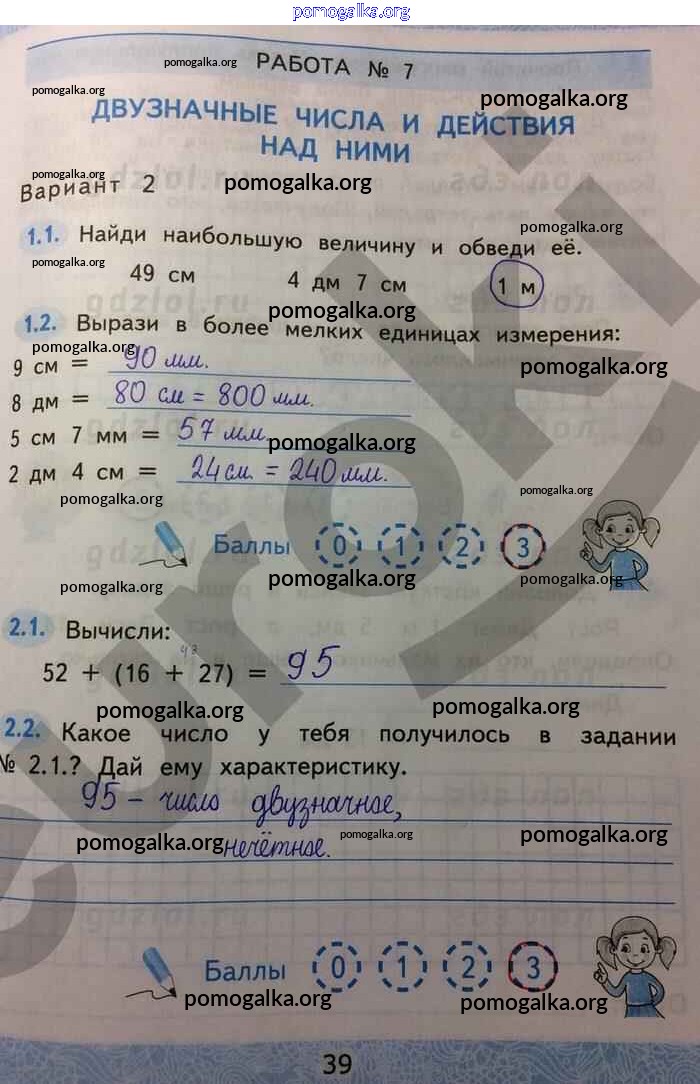 pomogalka.org
РАБОТА № 7
pomogalka.org
pomogalka.org
pomogalka.org
ДВУЗНАЧНЫЕ ЧИСЛА И ДЕЙСТВИЯ
НАД НИМИ
pomogalka.org
pomogalka.org
Вариант 2
pomogalka.org
1.1. Найди наибольшую величину и обведи её.
pomogalka.org
49 см 4 дм 7 см 1 м
pomogalka.org
1.2. Вырази в более мелких единицах измерения:
pomogalka.org
9 см = 90 мм.
pomogalka.org
8 дм = 80 см = 800 мм.
5 см 7 мм = 57 мм.
pomogalka.org
2 дм 4 см = 24 см. = 240 мм.
pomogalka.org
pomogalka.org
Баллы 0 1 2 3
pomogalka.org
pomogalka.org
pomogalka.org
2.1. Вычисли:
43
52 + (16 + 27) = 95
pomogalka.org
pomogalka.org
2.2. Какое число у тебя получилось в задании
№ 2.1.? Дай ему характеристику.
95 – число двузначное,
pomogalka.org
нечётное.
pomogalka.org
pomogalka.org
Баллы 0 1 2 3
pomogalka.org
pomogalka.org
39